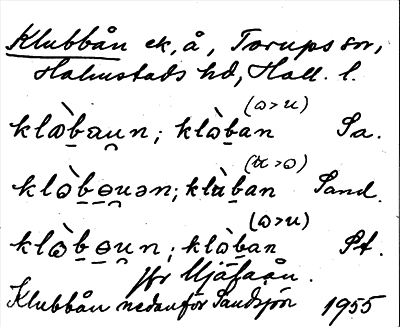 Klubbån ek, å, Torups sn,
Halmstads hd, Hall. l.
(ω>u)
klὼb̲au̯n; klὼb̲an Sa.
(u>ω)
klὼb̲ɵu̯ən; klùb̲an Sand.
(ω>u)
klὼb̲ɵu̯n; klὼb̲an St.
jfr Mjäfaån.
Klubbån nedanför Sandsjön 1955